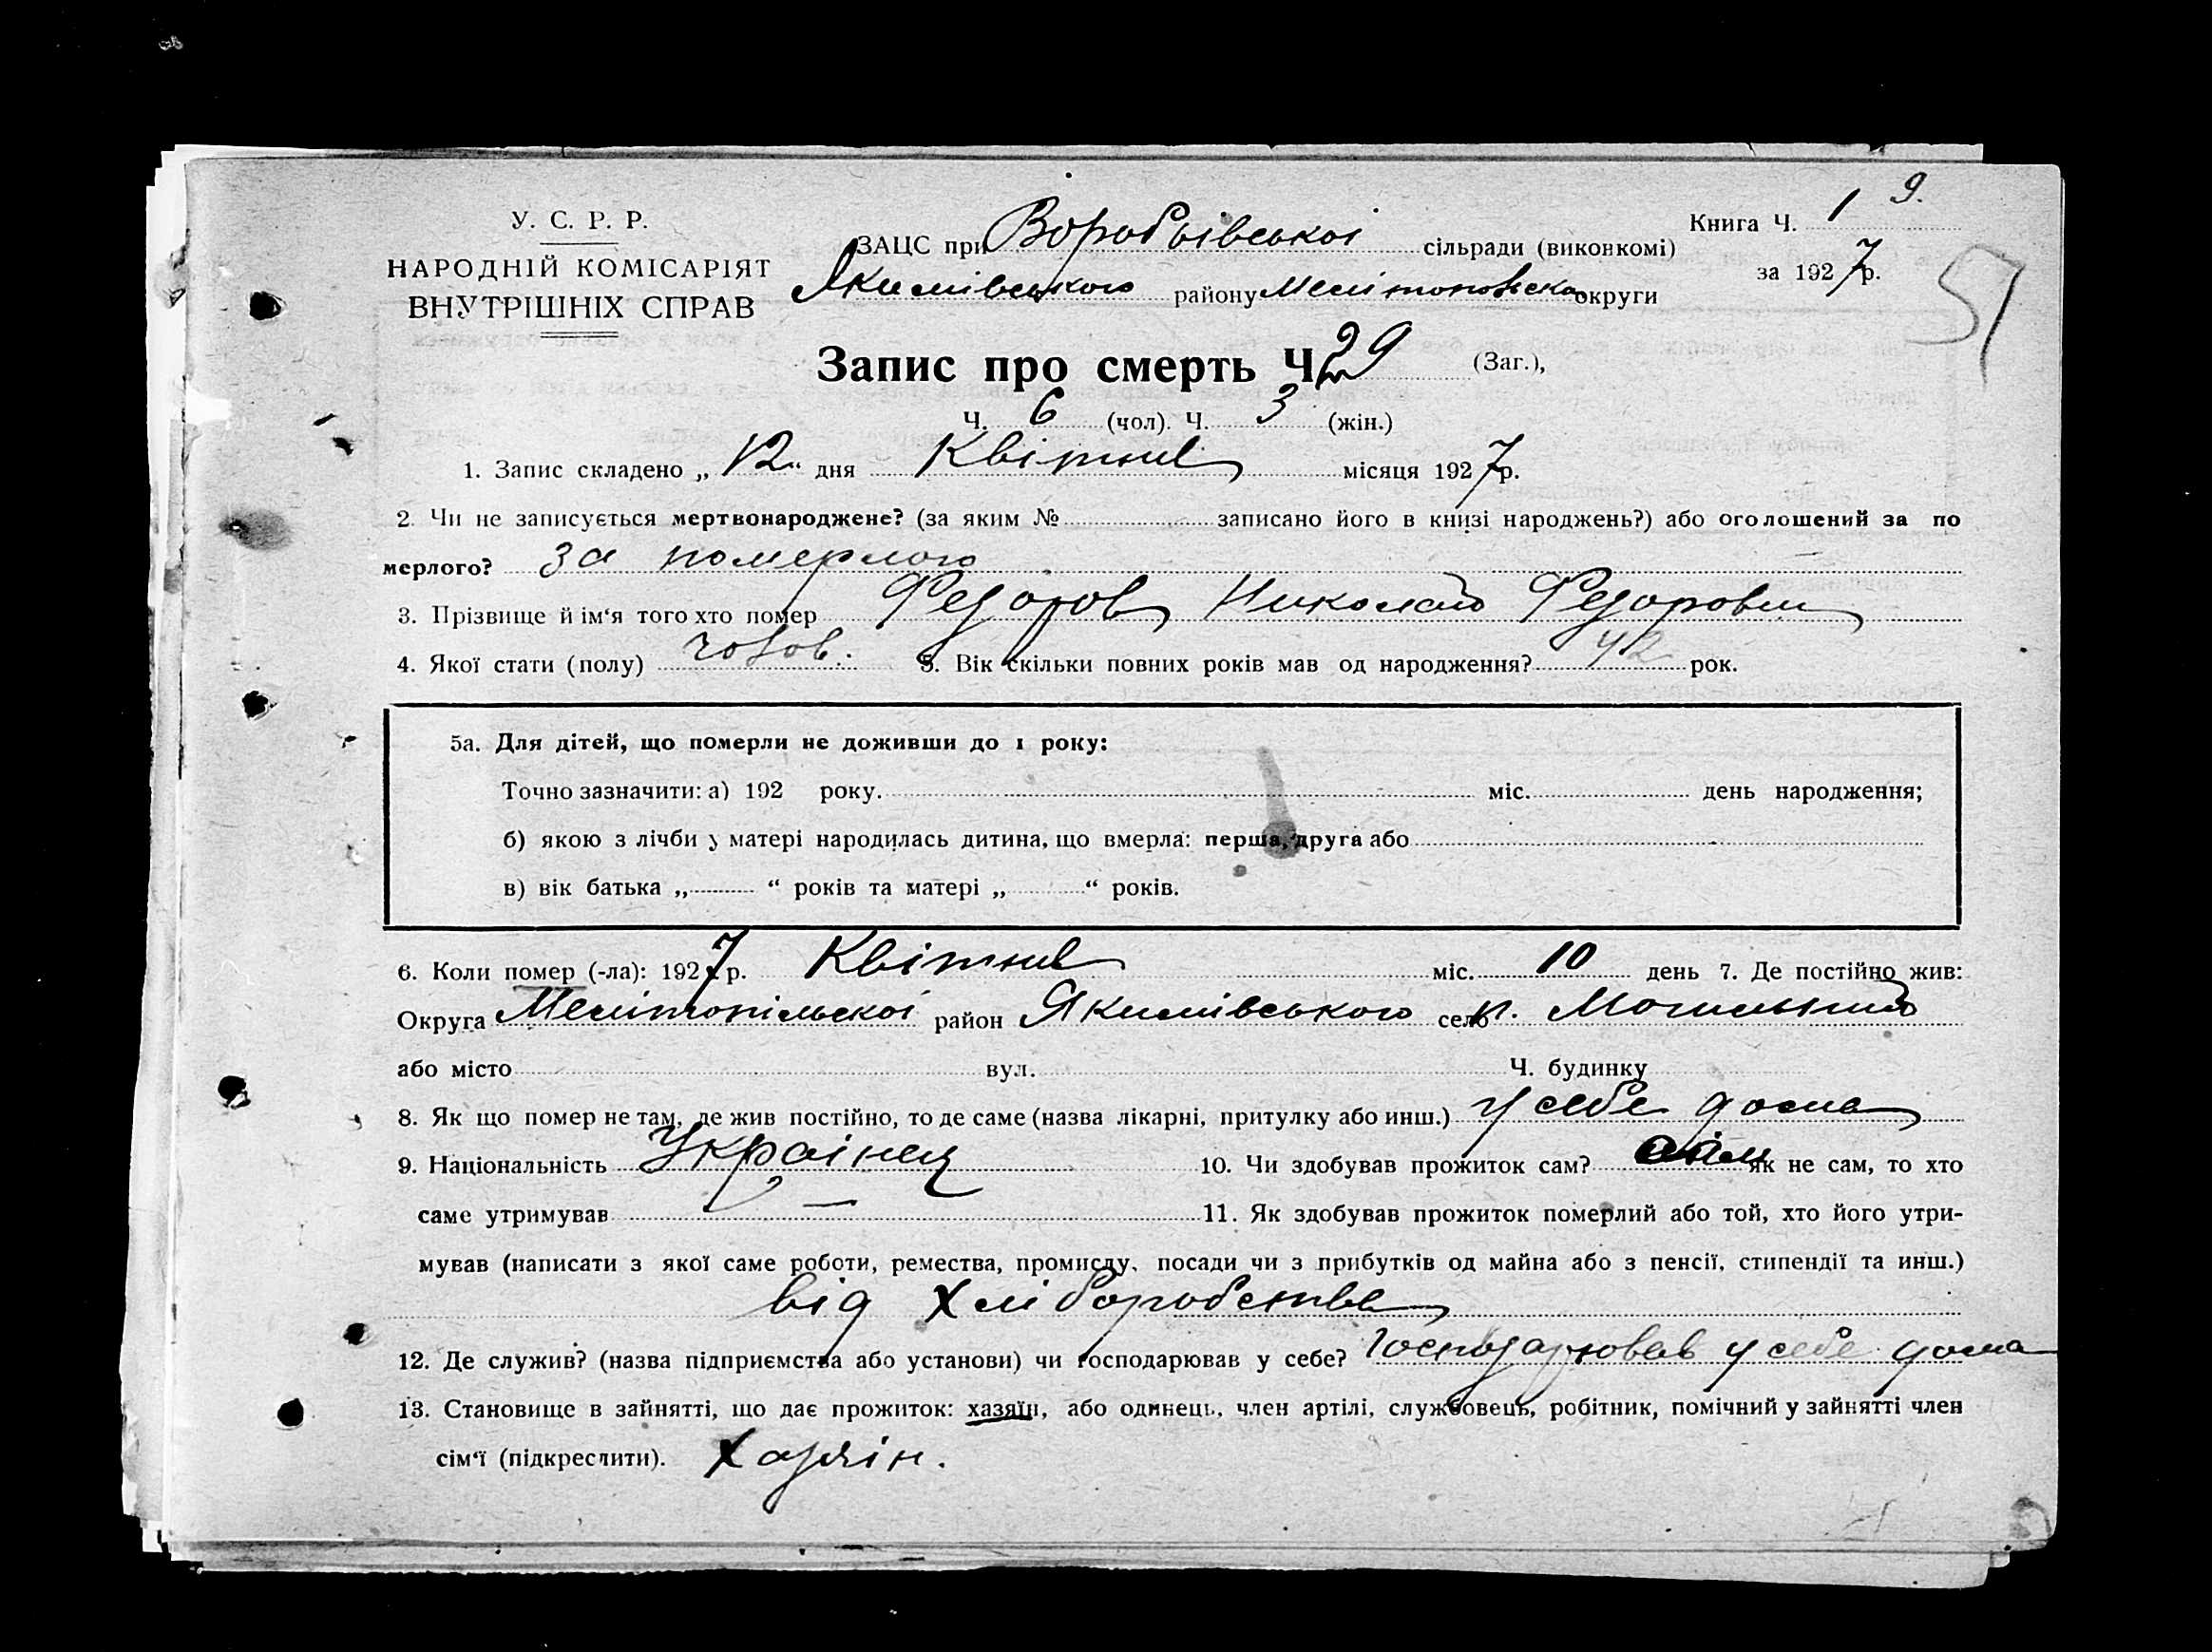 У. С. Р. Р.
НАРОДНІЙ КОМІСАРІЯТ
ВНУТРІШНІХ СПРАВ
ЗАЦС при Воробьівської сільради (виконкомі)
Якимівського району округи
Книга Ч. 1 9.
за 1927 р.
51
Запис про смерть Ч. 29 (Заг.),
Ч. 6 (чол). Ч. 3 (жін.)
1. Запис складено „ 12 “ дня Квітня місяця 1927 р.
2. Чи не записується мертвонароджене? (за яким № записано його в книзі народжень?) або оголошений за по
мерлого? за померлого
3. Прізвище й ім‘я того хто помер Федоров Николай Федорович
4. Якої стати (полу) чолов. 5. Вік скільки повних років мав од народження? 42 рок.
5а. Для дітей, що померли не доживши до 1 року:
Точно зазначити: а) 192 року. міс. день народження;
б) якою з лічби у матері народилась дитина, що вмерла: перша, друга або
в) вік батька „ “ років та матері „ “ років.
6. Коли помер (-ла): 1927 р. Квітня міс. 10 день 7. Де постійно жив:
Округа Мелітопільскої район Якимівського село п.
або місто вул. Ч. будинку
8. Як що помер не там, де жив постійно, то де саме (назва лікарні, притулку або инш.) у себе дома
9. Національність Україней 10. Чи здобував прожиток сам? сам як не сам, то хто
саме утримував — 11. Як здобував прожиток померлий або той, хто його утри-
мував (написати з якої саме роботи, ремества, промислу, посади чи з прибутків од майна або з пенсії, стипендії та инш.)
від хліборобства
12. Де служив? (назва підприємства або установи) чи господарював у себе? Господарював у себе дома
13. Становище в зайнятті, що дає прожиток: хазяїн, або одинець, член артілі, службовець, робітник, помічний у зайнятті член
сім‘ї (підкреслити). Хазяін.